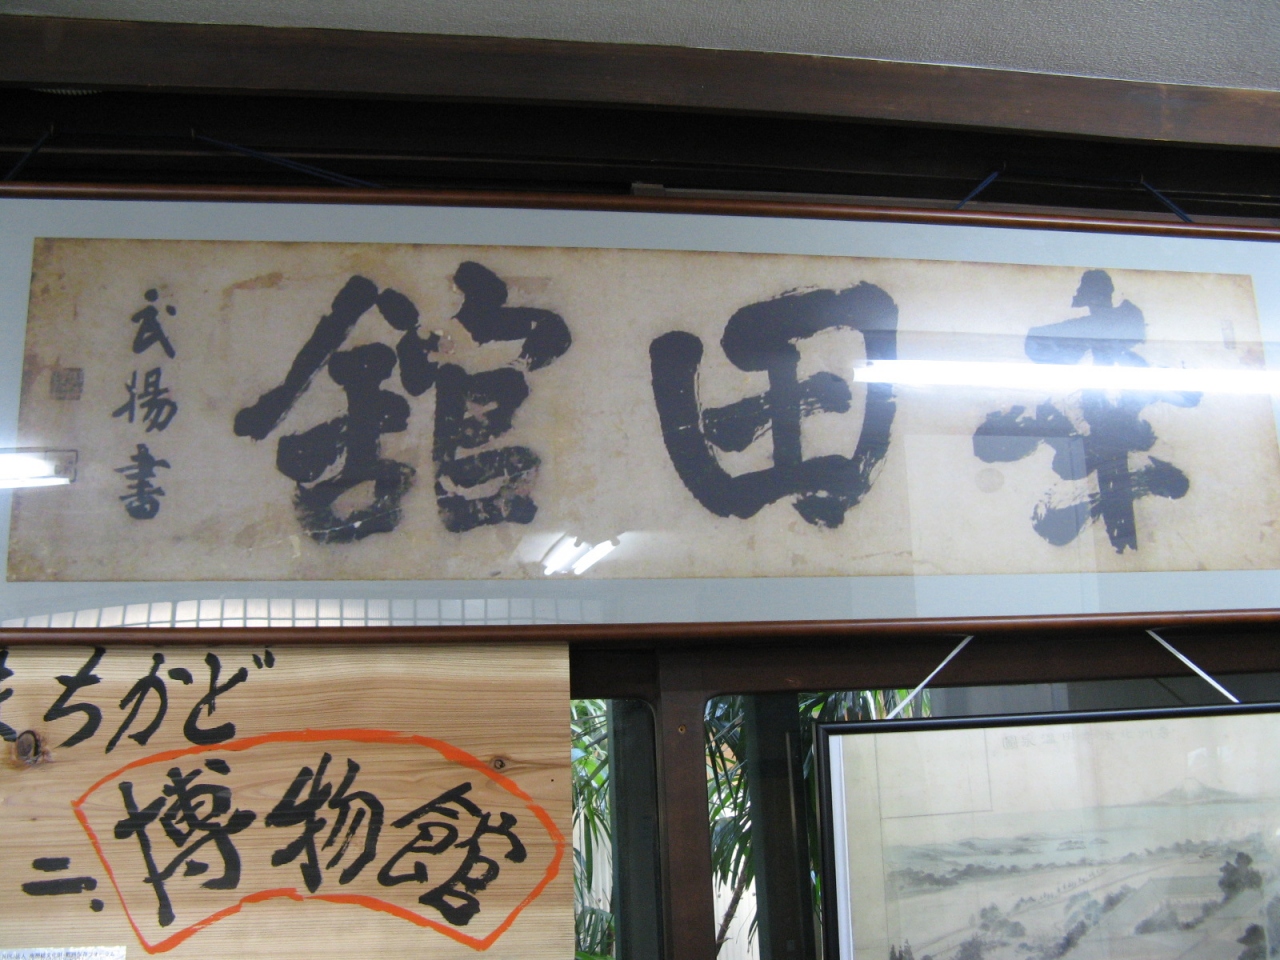 幸田館
武揚書
まちかど
ニ博物館